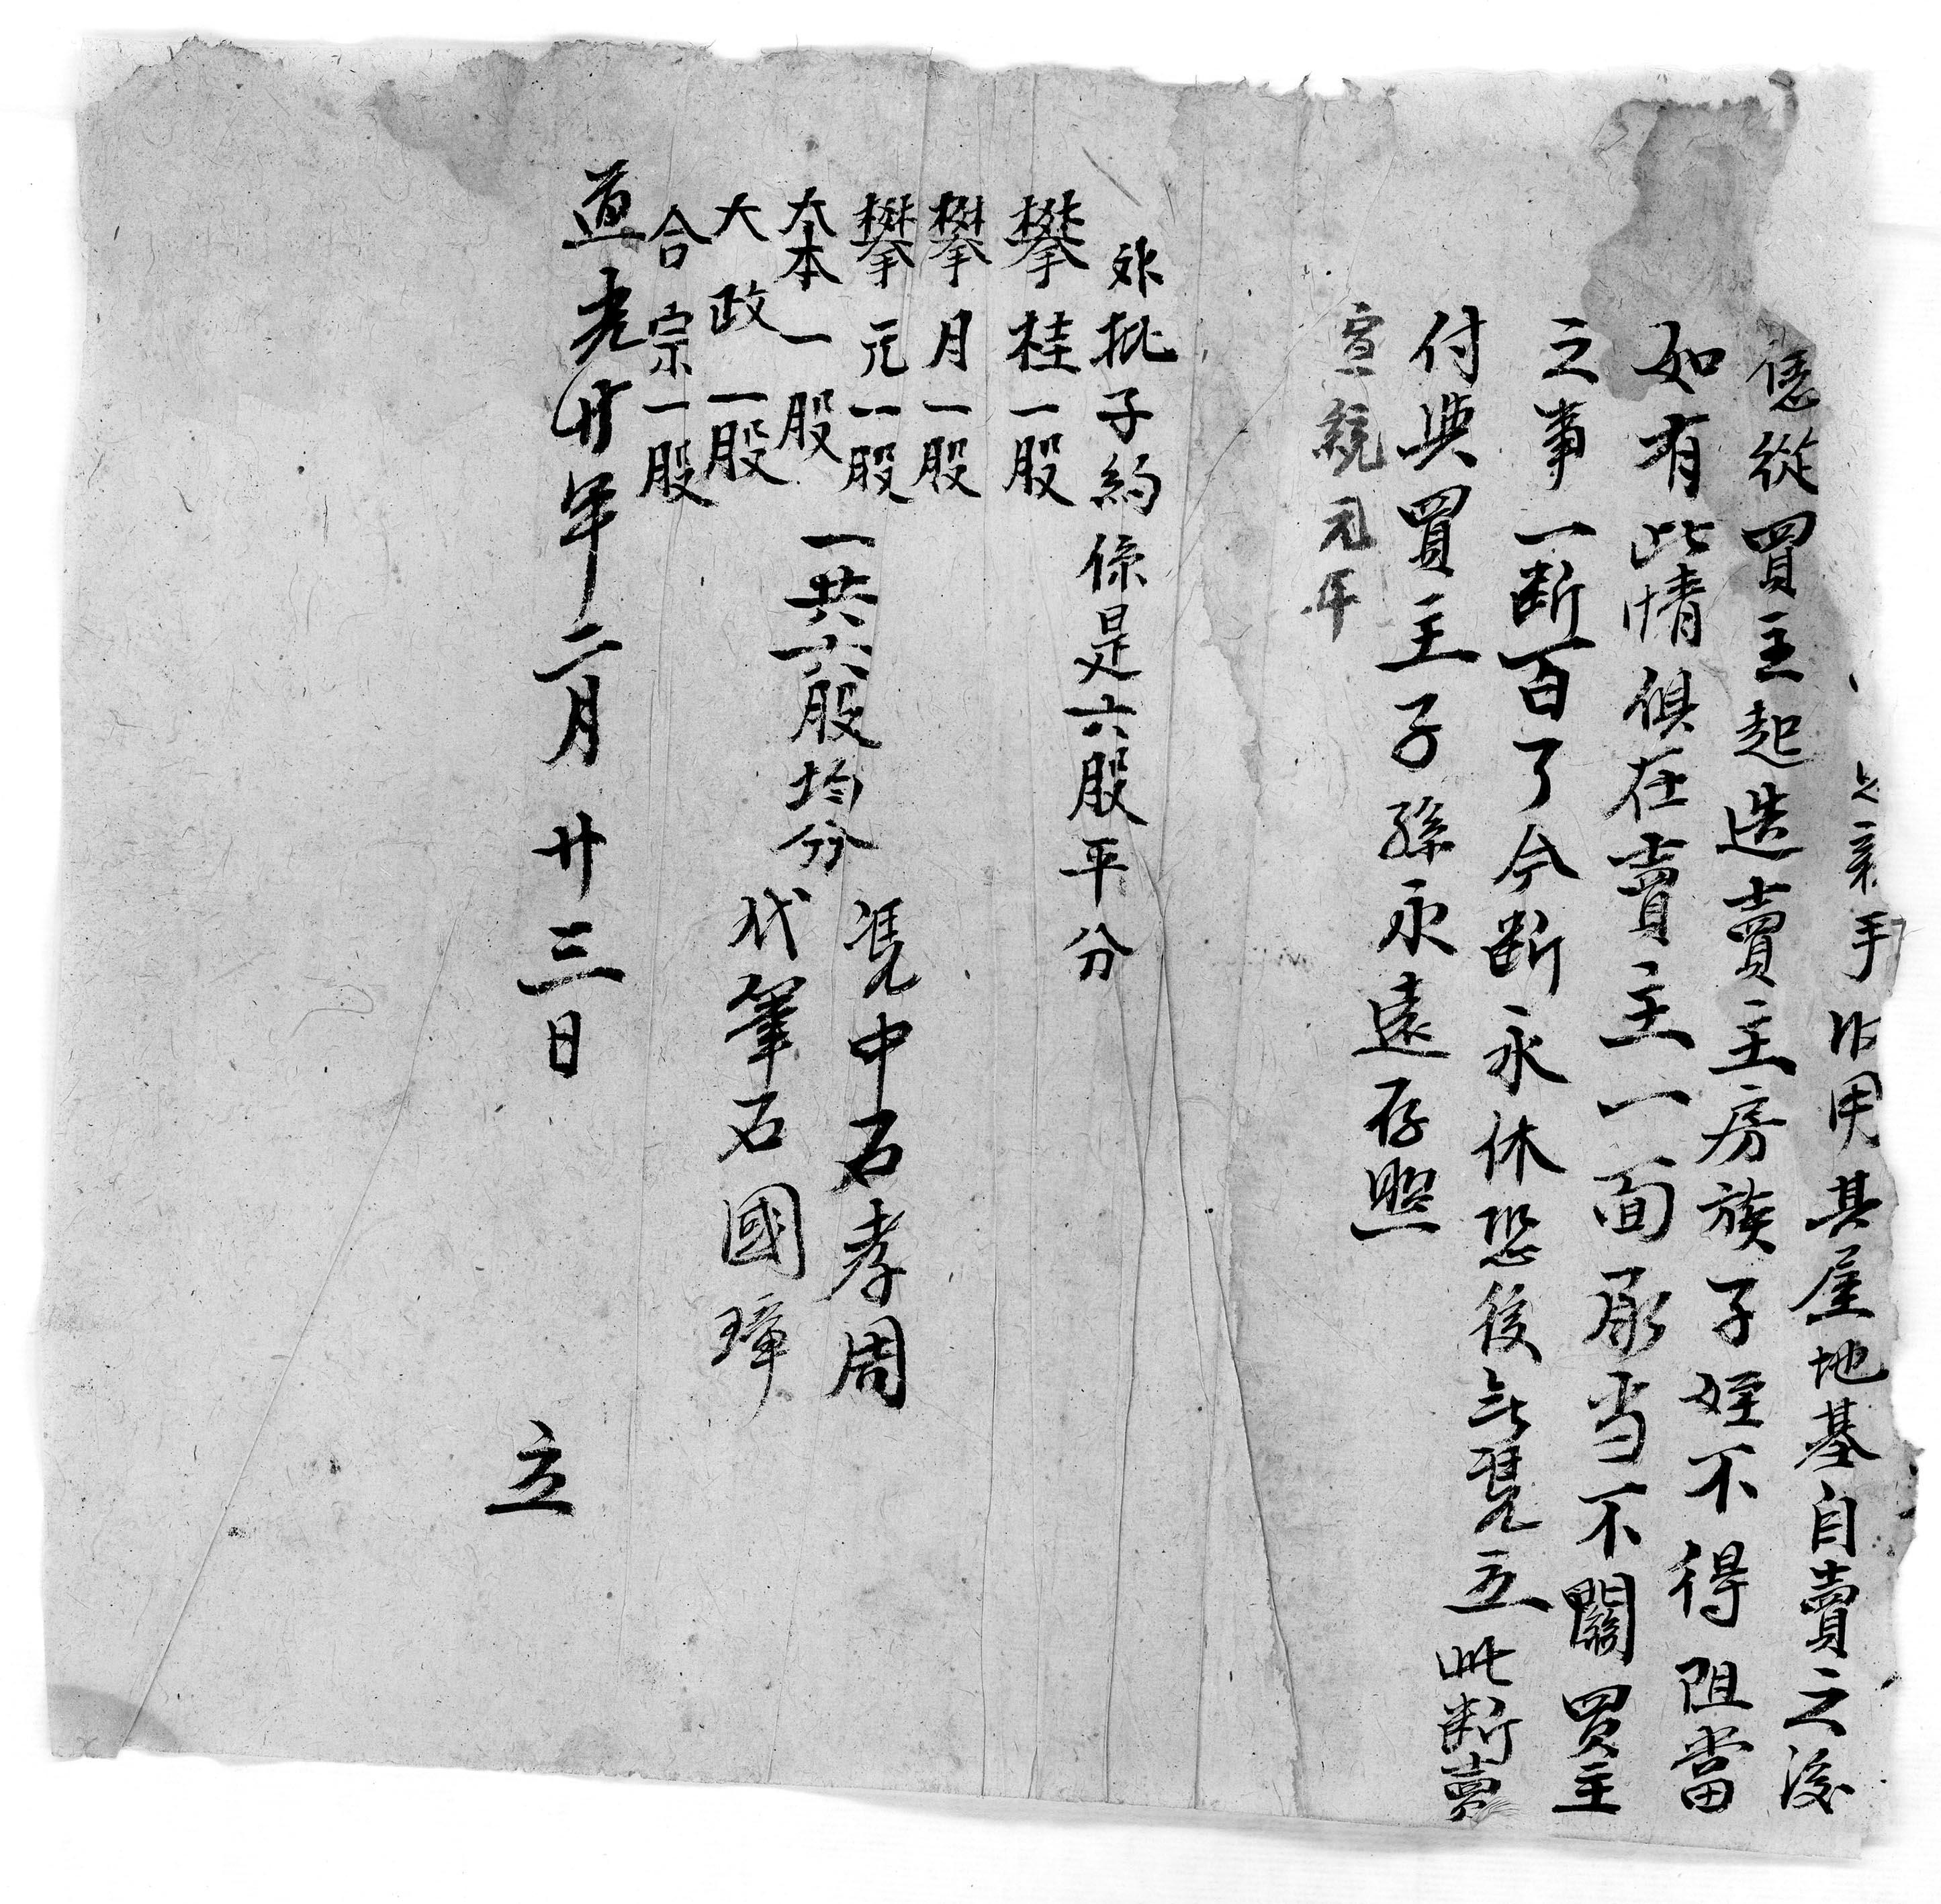 親手作用其屋地基自賣之後
憑從買主起造賣主房族子姪不得阻當
如有此情俱在賣主一面承当不關買主
之事一断百了今断永休恐後無凭立此断賣
付與買主子孫永遠存照
宣統元年
外批子約係是六股平分
攀桂一股
攀月一股
攀元一股
大本一股
大政一股
合宗一股
一共六股均分
凴中石孝周
代筆石國璋
道光廿年二月廿三日
立